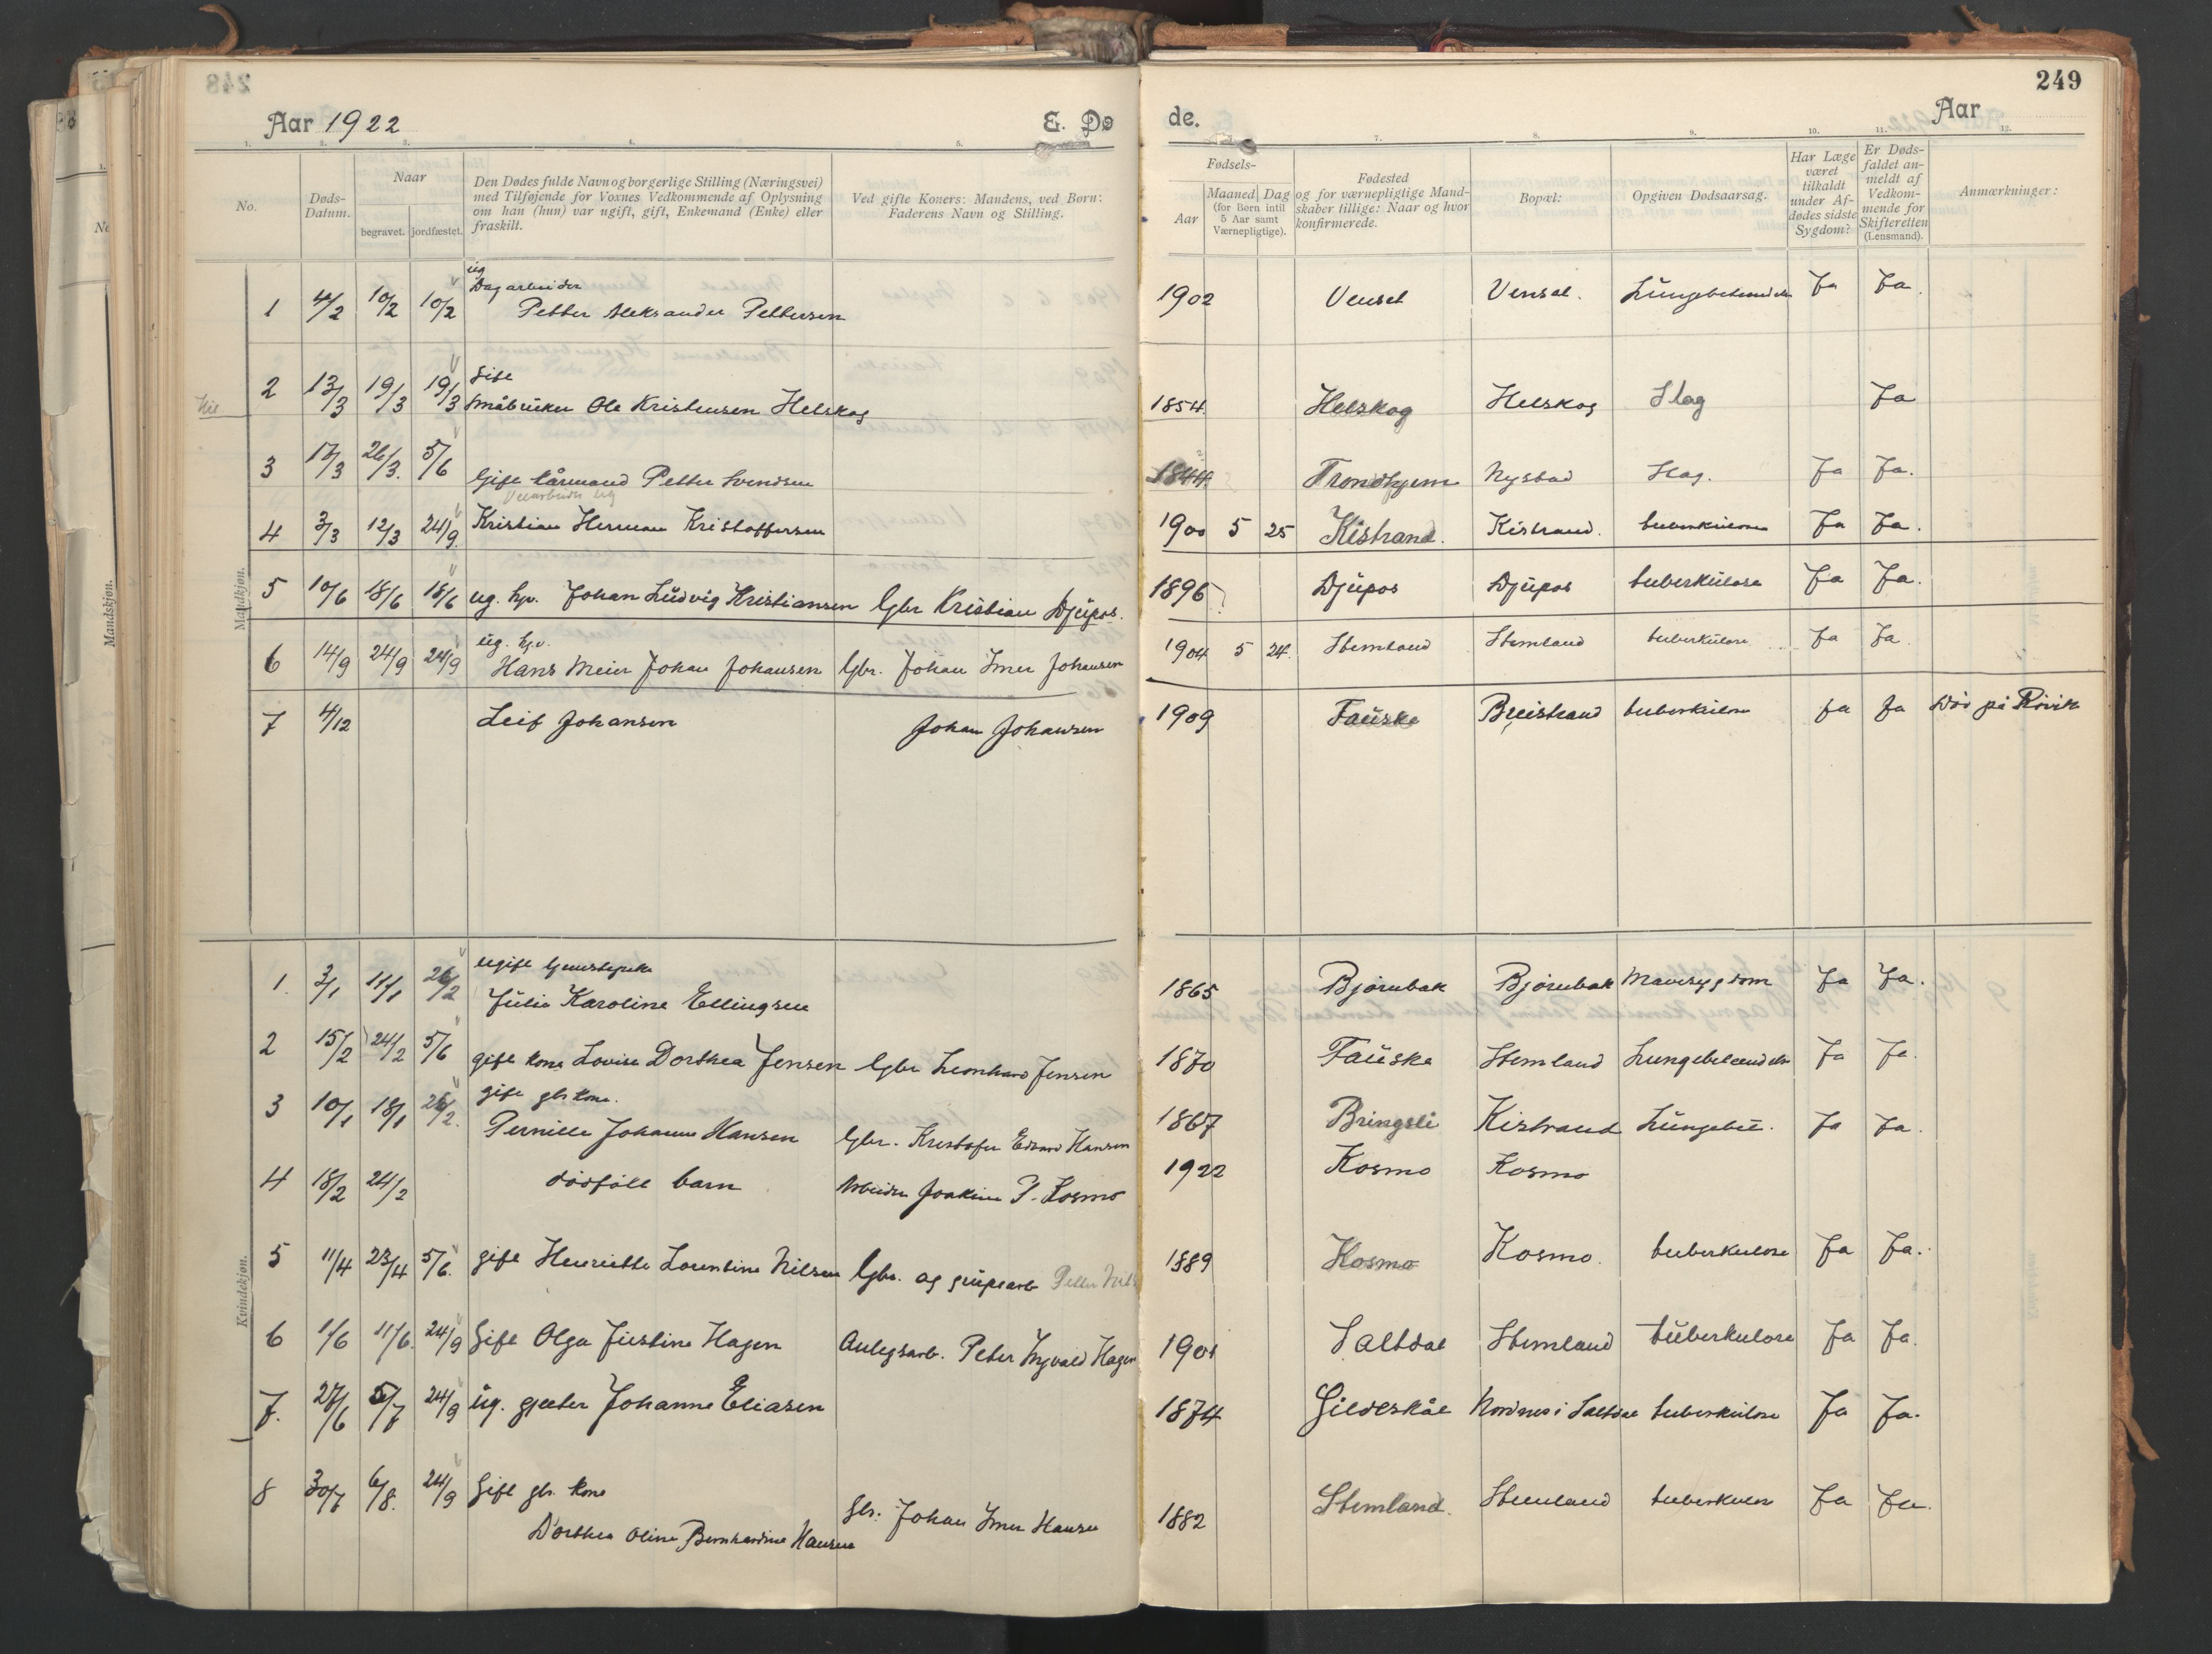 249
Aar 1922 E. Døde. Aar
1. 2. 3. 4. 5. 7. 8. 9. 10. 11. 12.
No. Døds-Datum. Naar begravet. jordfæstet. Den Dødes fulde Navn og borgerlige Stilling (Næringsvei) med Tilføjende for Voxnes Vedkommende af Oplysning om han (hun) var ugift, gift, Enkemand (Enke) eller fraskilt. Ved gifte Koners: Mandens, ved Børn: Faderens Navn og Stilling. Fødsels- Aar Maaned Dag (for Børn intil 5 Aar samt Værnepligtige). Fødested og for værnepligtige Mandskaber tillige: Naar og hvor konfirmerede. Bopæl: Opgiven Dødsaarsag. Har Læge været tilkaldt under Afdødes sidste Sygdom? Er Dødsfaldet anmeldt af Vedkommende for Skifteretten (Lensmand). Anmærkninger:
Mandkjøn.
ug
Dagarbeider
1 4/2 10/2 10/2 Petter Aleksander Pettersen 1902 Venset Venset. Lungebetændelse Ja Ja.
Gift
2 13/3 19/3 19/3 Småbruker Ole Kristensen Helskog 1854 Helskog Helskog Slag Ja
3 17/3 26/3. 5/6 Gift kårmand Petter Svendsen 1844 Trondhjem Nystad Slag. Ja Ja.
Veiarbeider ug
4 3/3 12/3 24/9. Kristian Herman Kristoffersen 1900 5 25 Kistrand. Kistrand. tuberkulose Ja Ja.
5 10/6 18/6 18/6 ug. hjv. Johan Ludvig Kristiansen Gbr Kristian Djupos. 1896 Djupos Djupos tuberkulose Ja Ja.
ug. hjv.
6 14/9 24/9 24/9 Hans Meier Johan Johansen Gbr. Johan Imer Johansen 1904 5 24. Stemland Stemland tuberkulose Ja Ja.
7 4/12 Leif Johansen Johan Johansen 1909 Fauske Breistrand tuberkulose ja Ja Død på Røvik
Kvindekjøn.
ugift
1. 3/1 11/1 26/2 Julie Karoline Ellingsen 1865 Bjørnbak Bjørnbak Mavesygdom Ja Ja.
2 15/2 24/2 5/6 gift kone Lovise Dorthea Jensen Gbr Leonhard Jensen 1870 Fauske Stemland Lungebetændelse Ja Ja.
gift gbr kone.
3 10/1 18/1 26/2. Pernille Johanne Hansen Gbr. Kristofer Edvard Hansen 1867 Bringsli Kistrand Lungebet. Ja Ja.
4 18/2 24/2 dødfødt barn Arbeider Joakim P. Kosmo 1922 Kosmo Kosmo
5 11/4 23/4 5/6. gift Henriette Lorentine Nilsen Gbr. og grubearb Petter 1889 Kosmo Kosmo. tuberkulose Ja Ja.
6 1/6 11/6. 24/9 Gift Olga Justine Hagen Anlegsarb. Peter Ingvald Hagen 1901 Saltdal Stemland tuberkulose Ja Ja.
7. 27/6 5/7 24/9 ug. gjeter Johanne Eliasen 1874 Gildeskål Nordnes i Saltdal tuberkulose Ja Ja.
8 30/7 6/8. 24/9 Gift gbr. kone
Dorthea Oline Bernhardine Hansen Gbr. Johan Imer Hansen 1882 Stemland. Stemland tuberkulose Ja Ja.